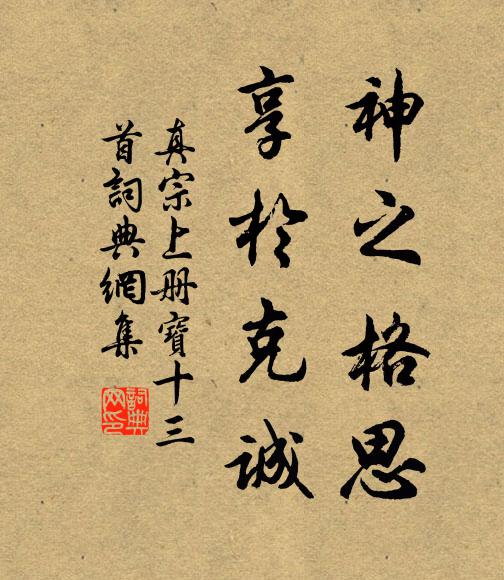 神之格思
享於克誠
真宗上册寶十三
首詞典網集
詞典
网印